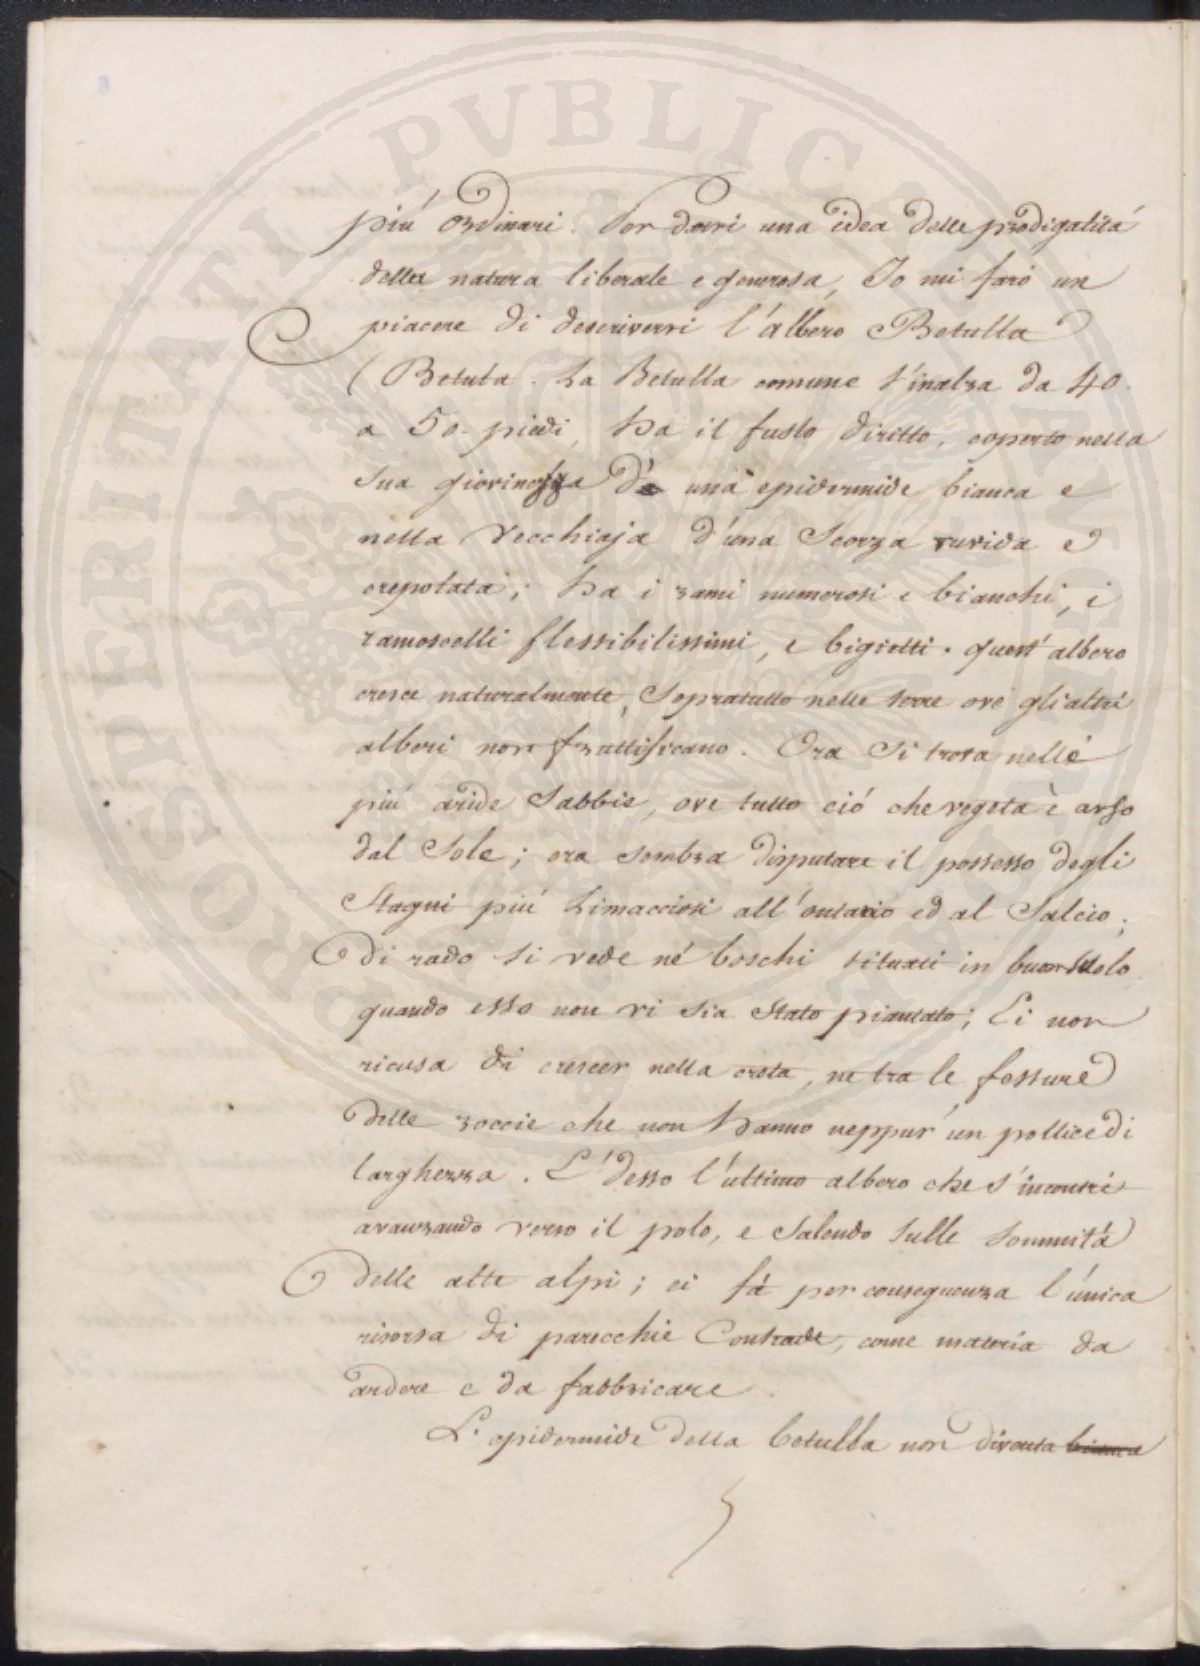 più ordinari. Per darvi una idea delle prodigalità
della natura liberale e generosa, Io mi farò un
piacere di descrivervi l'albero Betulla
(Betula. La Betulla comune s'inalza da 40.
a 50. piedi, ha il fusto diritto, coperto nella
sua giovinezza d' una epidermide bianca e
nella vecchiaja d'una Scorza ruvida e
crepolata; ha i rami numerosi e bianchi, i
ramoscelli flessibilissimi, e bigietti. quest'albero
cresce naturalmente, Sopratutto nelle terre ove gli altri
alberi non fruttificano. Ora Si trova nelle
più aride Sabbie, ove tutto ciò che vegeta è arso
dal Sole; ora sembra disputare il possesso degli
Stagni più Limacciosi all'ontario ed al Salcio;
Di rado si vede né boschi situati in buon suolo
quando esso non vi sia Stato piantato; Ei non
ricusa di crescer nella creta, ne tra le fessure
delle roccie che non hanno neppur' un pollice di
larghezza. E' desso l'ultimo albero che s'incontri
avanzando verso il polo, e Salendo Sulle Sommità
delle alte alpi; ei fà per conseguenza l'única
risorsa di parecchie Contrade, come materia da
ardere e da fabbricare.
L'epidermide della betulla non diventa bianca
PROSPERITATI PUBLICAE